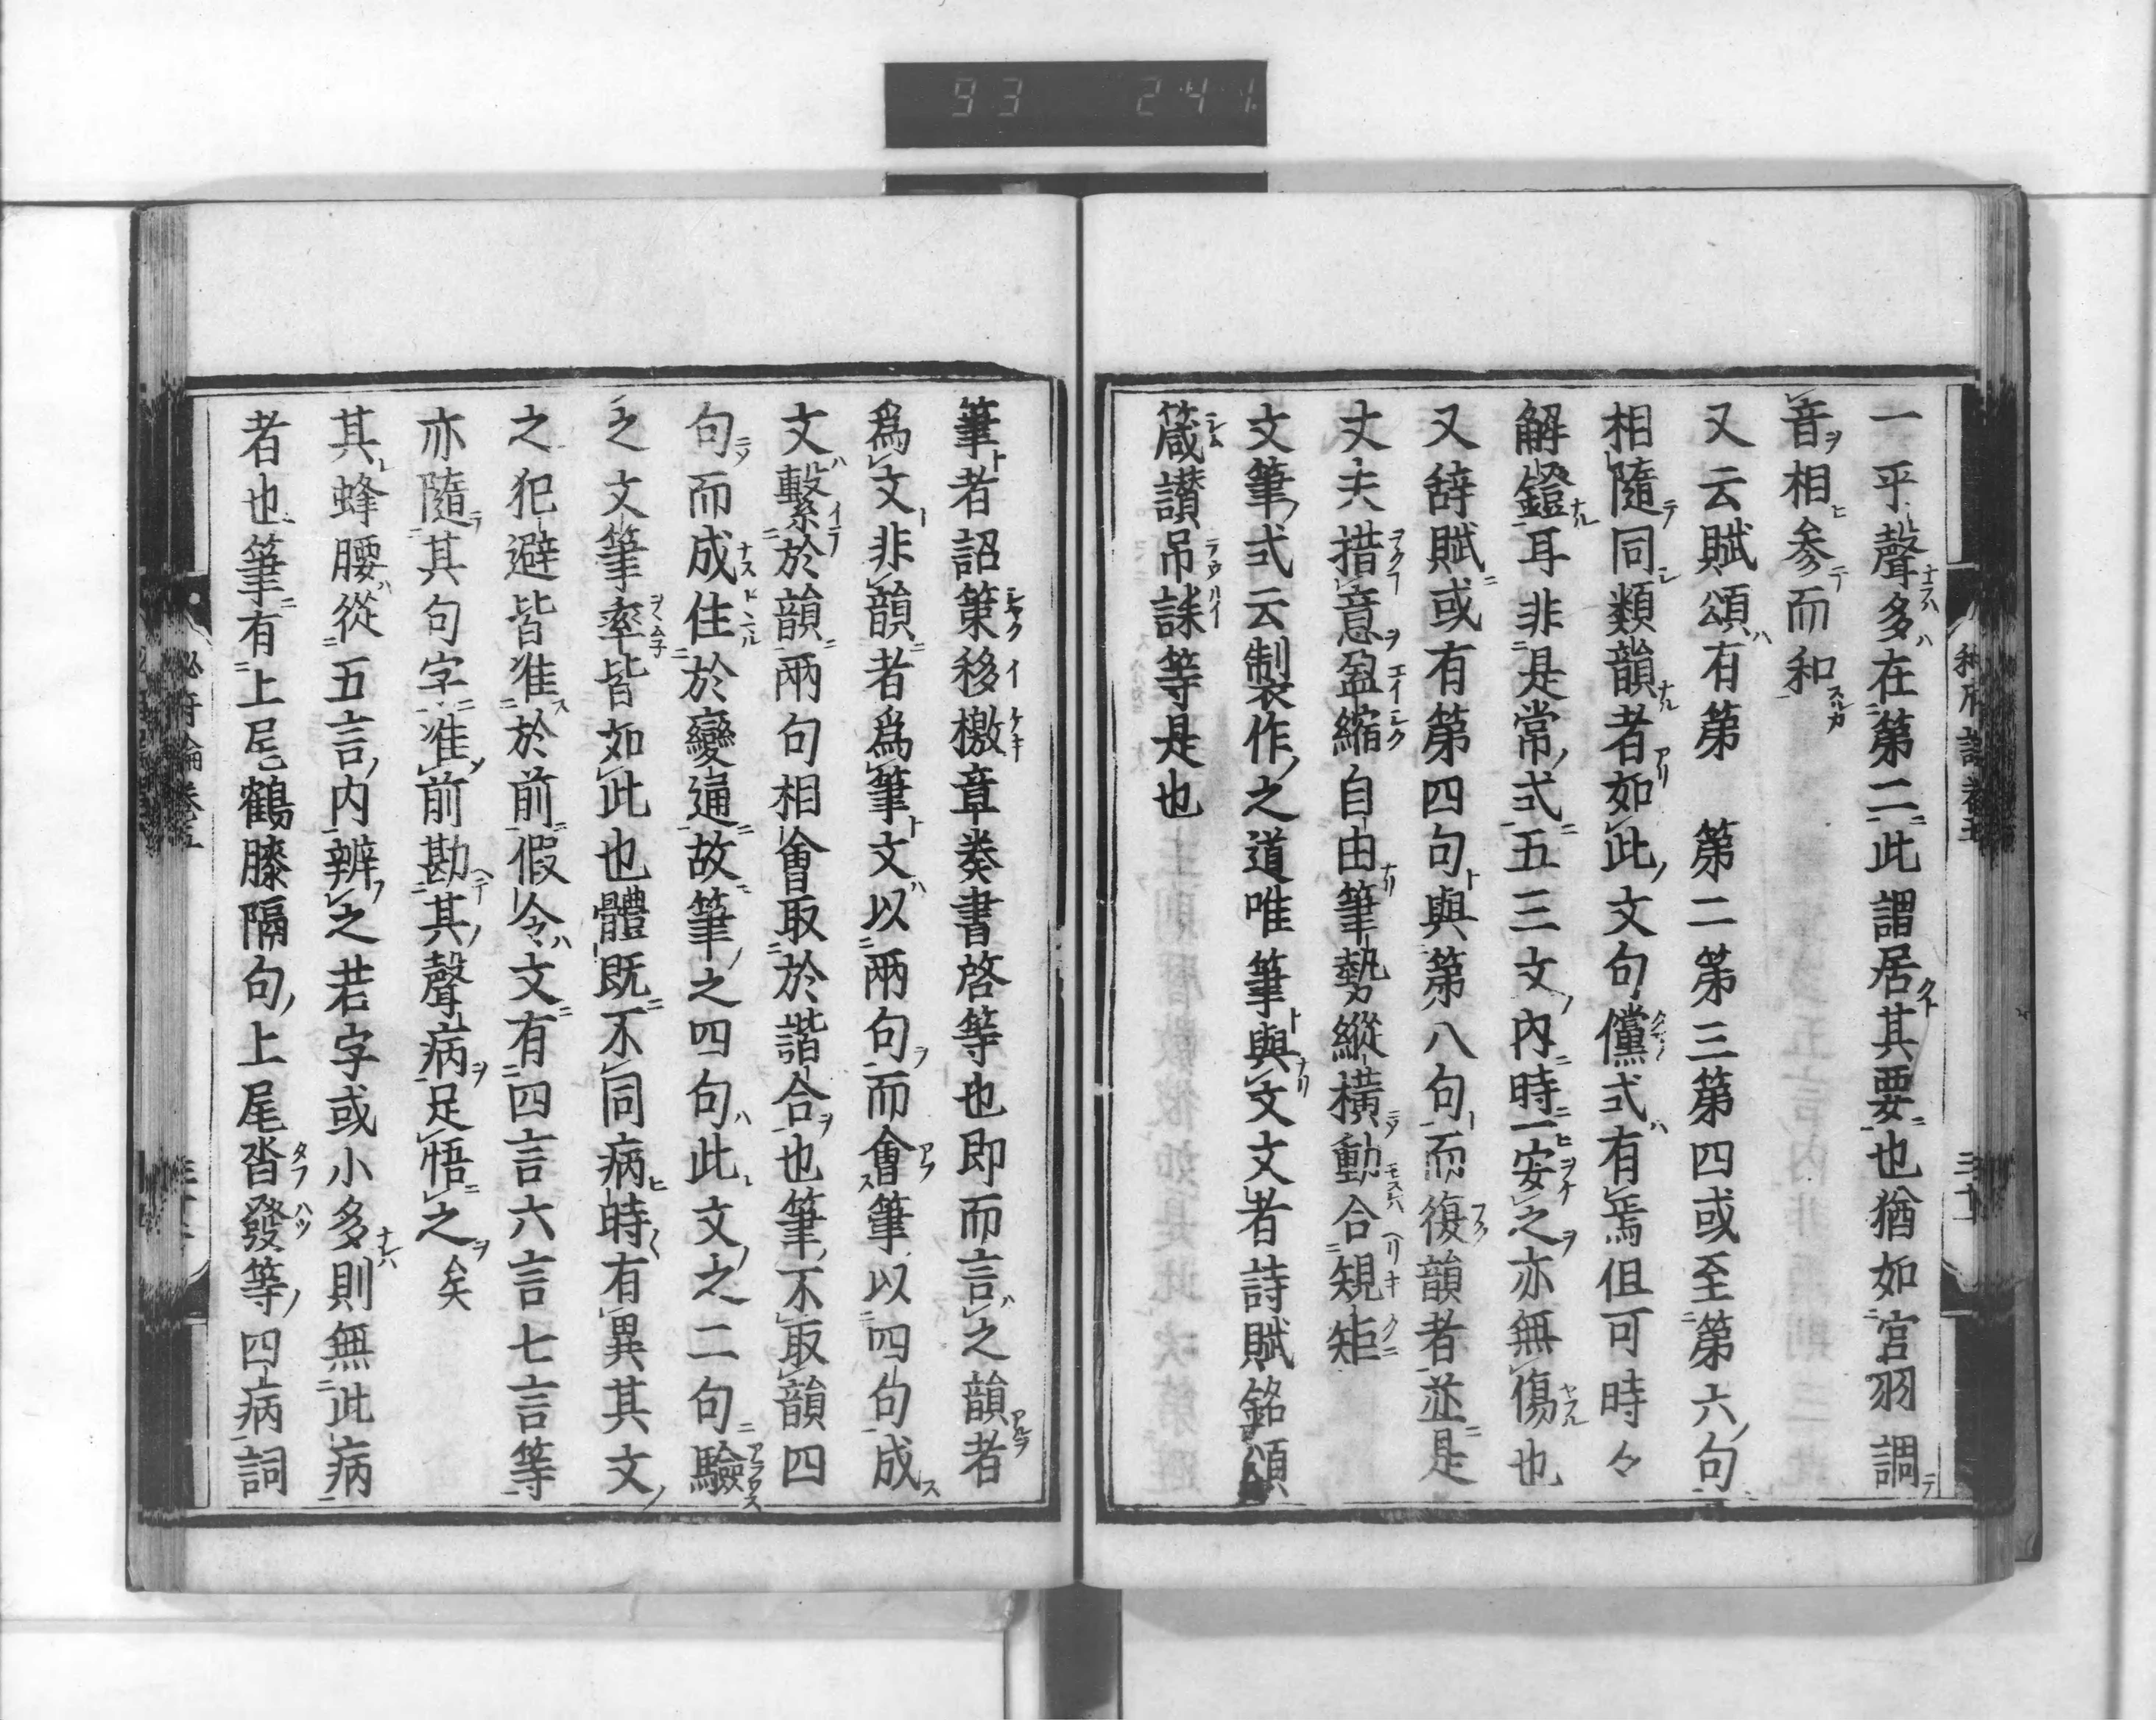 93 241
一乎聲多在第二此謂居其要也猶如宮羽調
音相参而和
又云賦頌有第 第二第三第四或至第六句
相隨同類韻者如此文句儻式有焉伹可時々
解鐙耳非是常式五三文內時一安之亦無傷也
又辞賦或有第四句與第八句而復韻者並是
丈夫措意盈縮自由筆勢縱橫動合規矩
文筆式云制作之道唯筆與文文者詩賦銘頌
箴讃吊誄等是也
筆者詔策移檄章奏書啓等也即而言之韻者
為文非韻者為筆文以兩句而會筆以四句成
文繫於韻兩句相會取於諧合也筆不取韻四
句而成住於變通故筆之四句此文之二句驗
之文筆率皆如此也體既不同病時有異其文
之犯避皆准於前假令文有四言六言七言等
亦隨其句字准前勘其聲病足悟之矣
其蜂腰從五言內辨之若字或小多則無此病
者也筆有上尾鶴膝隔句上尾沓發等四病詞